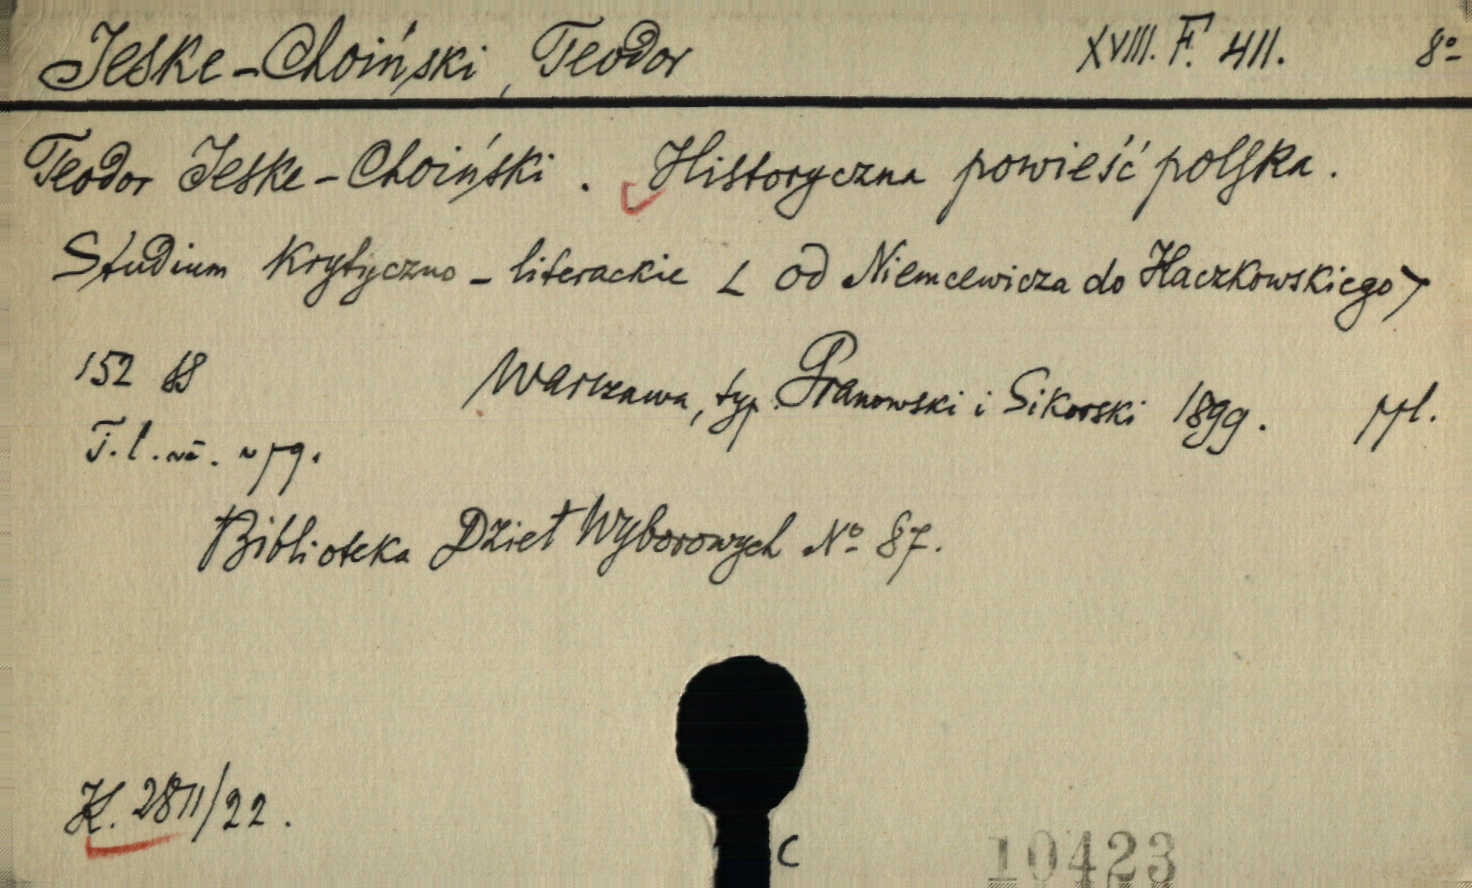 Jeske-Choiński, Teodor XVIII. F. 411. 8º
Teodor Jeske-Choiński. Historyczna powieść polska.
Studium krytyczno-literackie < od Niemcewicza do Kaczkowskiego >
152 SS Warszawa, typ. Granowski i Sikorski 1899. ppl.
T. l.
Biblioteka Dzieł Wyborowych Nº 87.
K. 2811/22.
C
10423